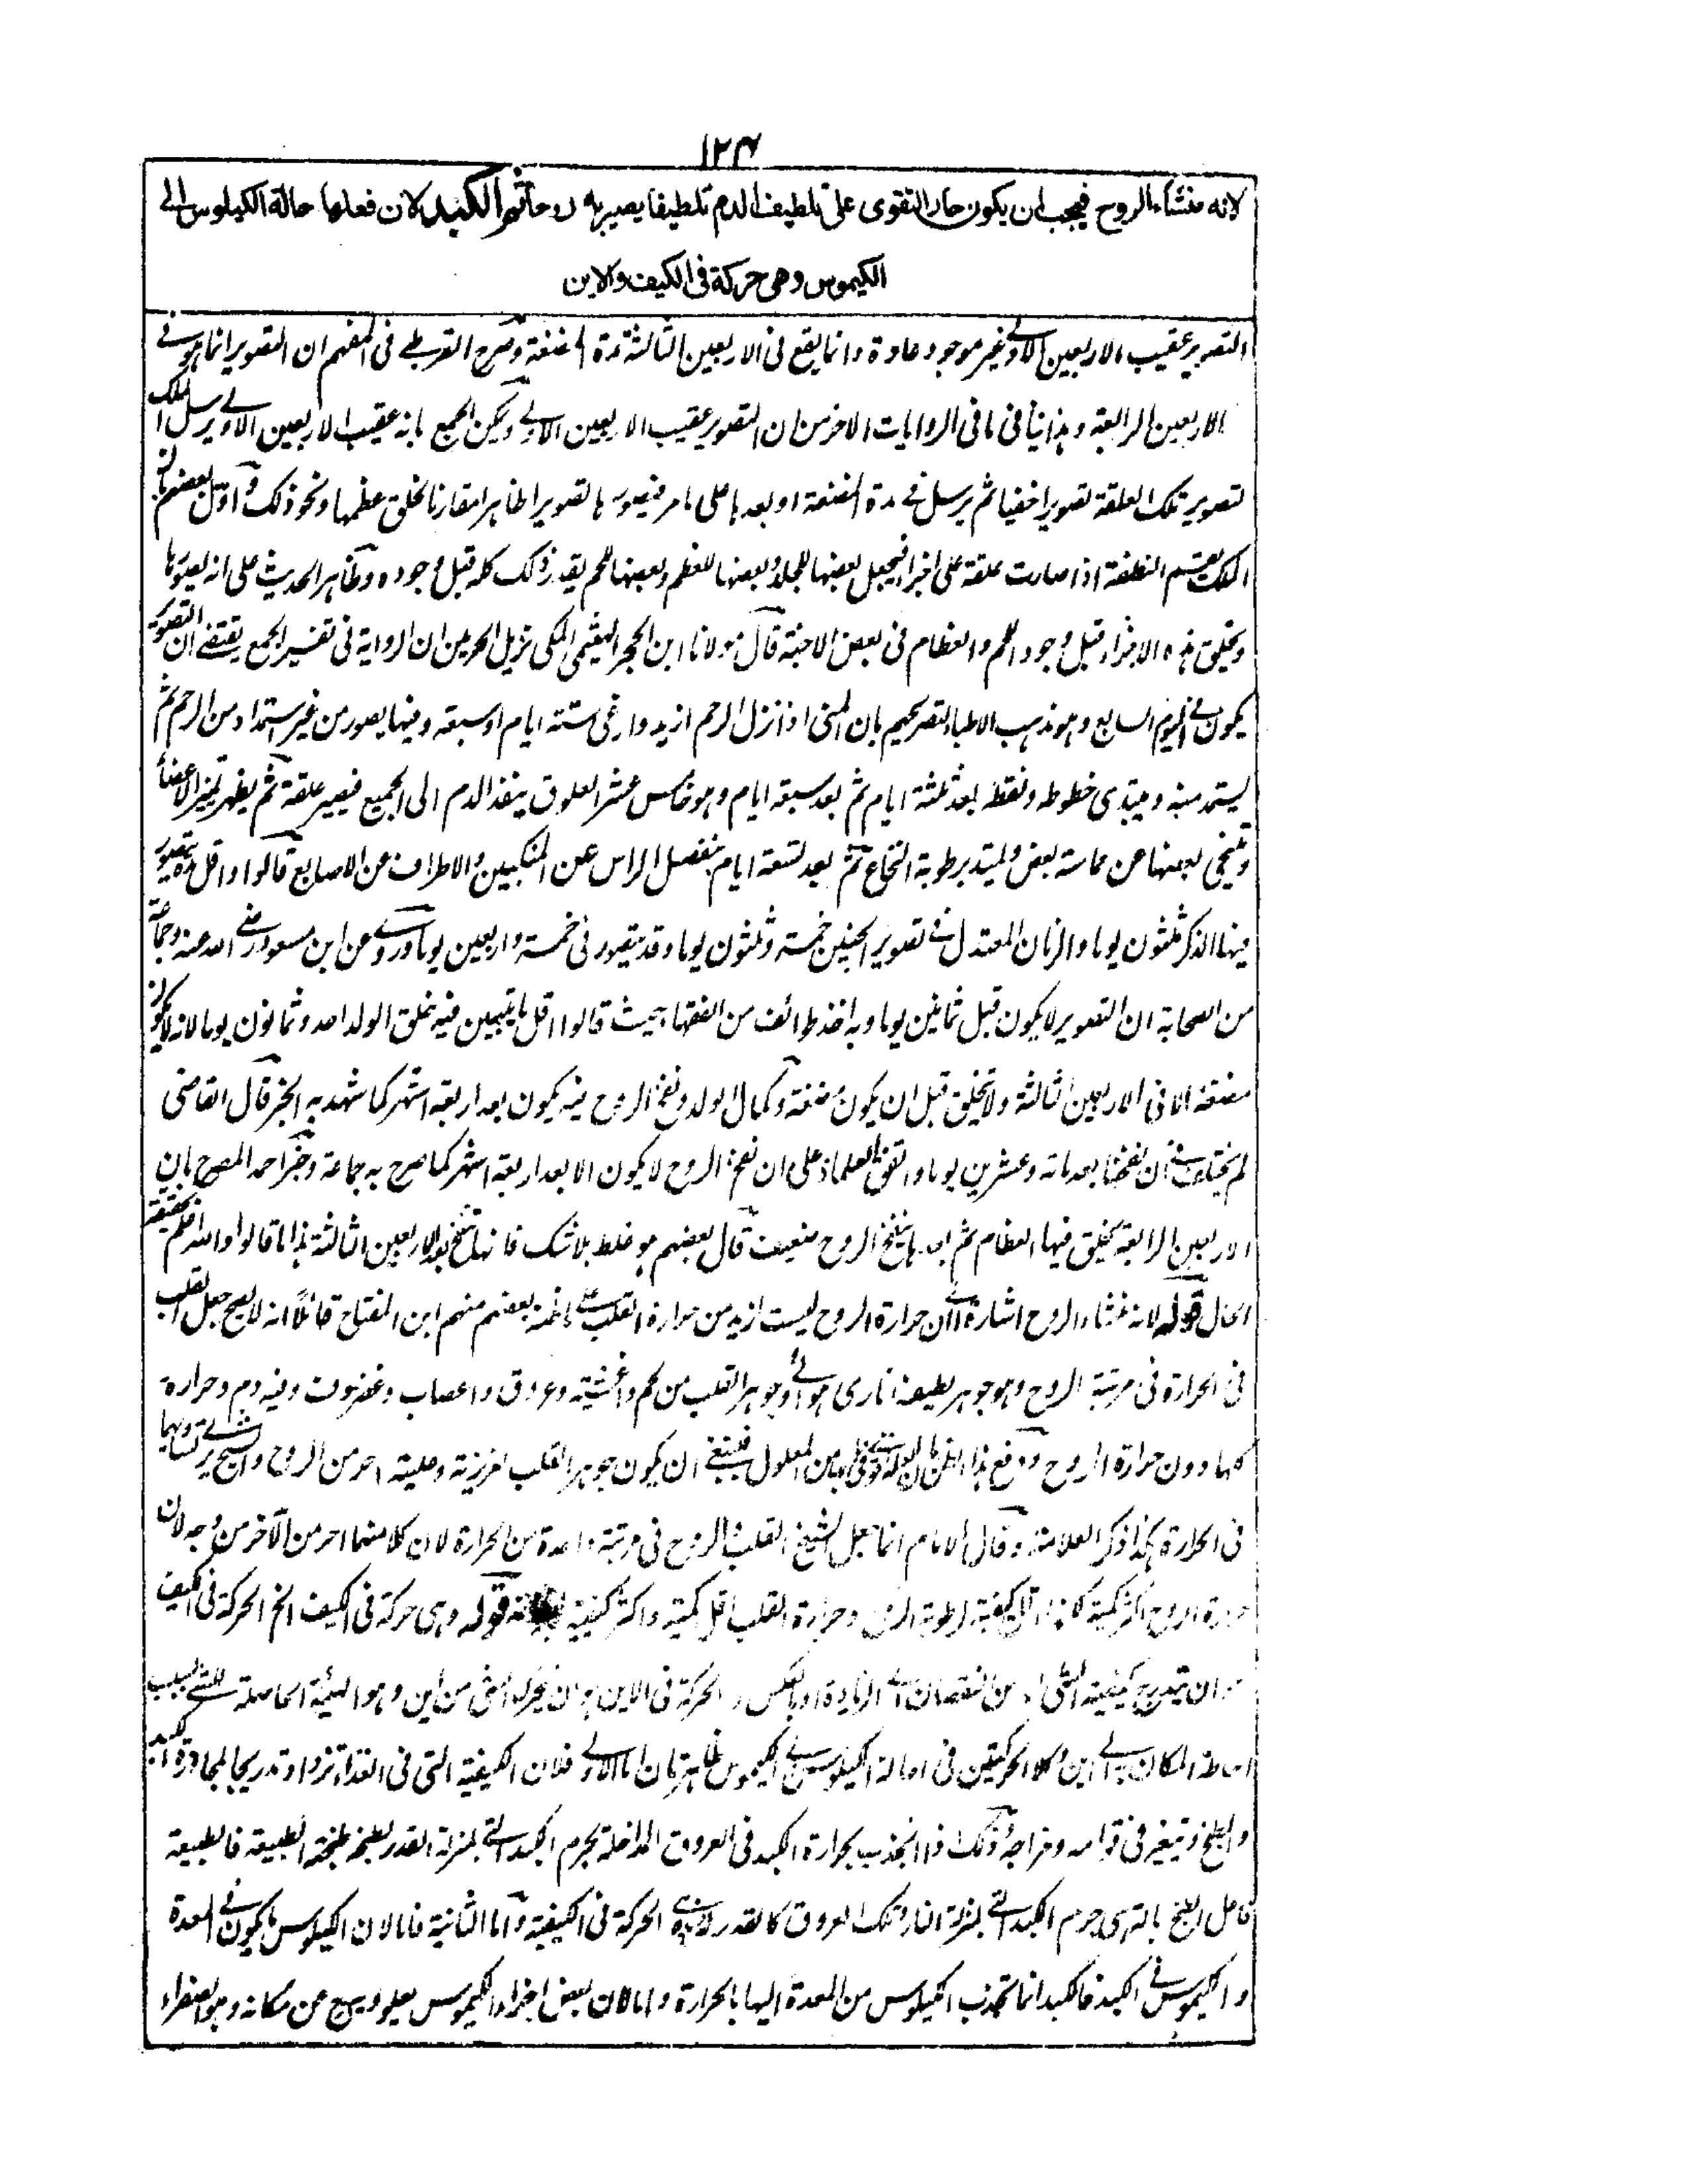 ١٢٤
لانه منشاء الروح فيجب ان يكون حارا لتقوى على تلطيف الدم تلطيفا يصير به روحا ثم الكبد لان فعلها حالة الكيلوس الى
الكيموس وهى حركة فى الكيف والاين
التصوير عقيب الاربعين الاولى غير موجود عادة وانما يقع فى الاربعين الثالثة مدة المضغة وصرح القرطبى فى المفهم ان التصوير انما هو فى
الاربعين الرابعة وهذا ينافى ما فى الروايات الاخر من ان التصوير عقيب الاربعين الاولى ويمكن الجمع بانه عقيب الاربعين الاولى يرسل الملك
لتصوير تلك العلقة تصويرا خفيا ثم يرسل فى مدة المضغة او بعدها على ما مر فيصورها تصويرا ظاهرا مقارنا لخلق عظمها ونحو ذلك واول بعضهم بان
الملك يقسم النطفة اذا صارت علقة على اجزا فيجعل بعضها للجلد وبعضها للعظم وبعضها للحم يقدر ذلك كله قبل وجوده وظاهر الحديث على انه يصورها
ويخلق هذه الاجزاء قبل وجود اللحم والعظام فى بعض الاجنة قال مولانا ابن الحجر الهيثمى المكى نزيل الحرمين ان الرواية فى تفسير الجمع يقتضى ان التصوير
يكون فى اليوم السابع وهو مذهب الاطباء لتصريحهم بان المنى اذا نزل الرحم ازبد وارغى ستة ايام او سبعة وفيها يصور من غير استمداد من الرحم ثم
يستمد منه ويبتدى خطوطه ونقطه بعد ثلثة ايام ثم بعد سبعة ايام وهو خامس عشر العلوق ينفذ الدم الى الجميع فيصير علقة ثم يظهر تميز الاعضاء
وتنحى بعضها عن مماسة بعض ويمتد برطوبة النخاع ثم بعد تسعة ايام ينفصل الراس عن المنكبين والاطراف عن الاصابع قالوا واقل مدة يتصور
فيها الذكر ثلثون يوما والزمان المعتدل فى تصوير الجنين خمسة وثلثون يوما وقد يتصور فى خمسة واربعين يوما وروى عن ابن مسعود رضى الله عنه وجماعة
من الصحابة ان التصوير لا يكون قبل ثمانين يوما وبه اخذ طوائف من الفقها حيث قالوا اقل ما يتبين فيه خلق الولد احد وثمانون يوما لانه لا يكون
مضغة الا فى الاربعين الثالثة ولا يتخلق قبل ان يكون مضغة وكمال الولد ونفخ الروح فيه يكون بعد اربعة اشهر كما شهد به الخبر قال القاضى
لم يختلف فى ان نفخها بعد مائة وعشرين يوما واتفق العلماء على ان نفخ الروح لا يكون الا بعد اربعة اشهر كما صرح به جماعة وخبر احمد المصرح بان
الاربعين الرابعة يخلق فيها العظام ثم بعدها ينفخ الروح ضعيف قال بعضهم هو غلط بلا شك فانها تنفخ بعد الاربعين الثالثة هذا ما قالوا والله اعلم بحقيقة
الحال قوله لانه منشاء الروح اشارة الى ان حرارة الروح ليست ازيد من حرارة القلب على ما ظنه بعضهم منهم ابن المفتاح قائلا انه لا يصح جعل القلب
فى الحرارة فى مرتبة الروح وهو جوهر لطيف نارى هوائى وجوهر القلب من لحم واغشية وعروق واعصاب وغضروف وفيه دم وحرارة
كلها دون حرارة الروح ودفع هذا الظن بان العلة من المعلول فينبغى ان يكون جوهر القلب لغريزية وصلبية احر من الروح والشيخ يرى تساويهما
فى الحرارة هكذا ذكر العلامة وقال الامام انما جعل الشيخ القلب والروح فى مرتبة واحدة من الحرارة لان كلا منهما احر من الآخر من وجه لان
حرارة الروح اكثر كمية واقل كيفية لرطوبة الروح وحرارة القلب اقل كمية واكثر كيفية قوله وهى حركة فى الكيف الخ الحركة فى الكيف
هو ان يتدرج كيفية الشئ من النقصان الى الزيادة او بالعكس والحركة فى الاين هو ان يتحرك الشئ من اين وهو الهيئة الحاصلة للشئ بسبب
احاطة المكان الى اين وكلا الحركتين فى احالة الكيلوس الى الكيموس ظاهرتان اما الاولى فلان الكيفية التى فى الغذاء تزداد تدريجا لمجاورة الكبد
والطبخ وتتغير فى قوامه ومزاجه وذلك اذا انجذب بحرارة الكبد فى العروق الداخلة بجرم الكبد التى بمنزلة القدر لطبخه طبخته الطبيعة فالطبيعة
فاعل الطبخ بالتى هى جرم الكبد التى بمنزلة النار وتلك العروق كالقدر الحركة فى الكيفية واما الثانية فاما لان الكيلوس ما يكون فى المعدة
والكيموس فى الكبد فالكبد انما تجذب الكيلوس من المعدة اليها بالحرارة واما لان بعض اجزاء الكيموس يعلو ويهيج عن مكانه وهو الصفراء